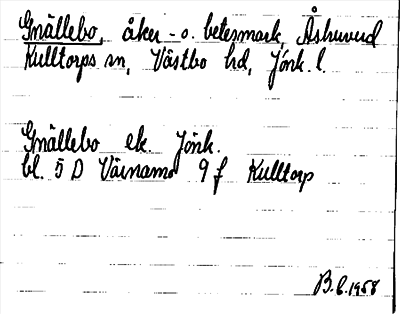 Gnällebo, åker- o. betesmark, Åshuvud
Kulltorps sn, Västbo hd, Jönk. l.
Gnällebo ek. Jönk.
bl. 5 D Värnamo 9 f Kulltorp
B.C. 1958